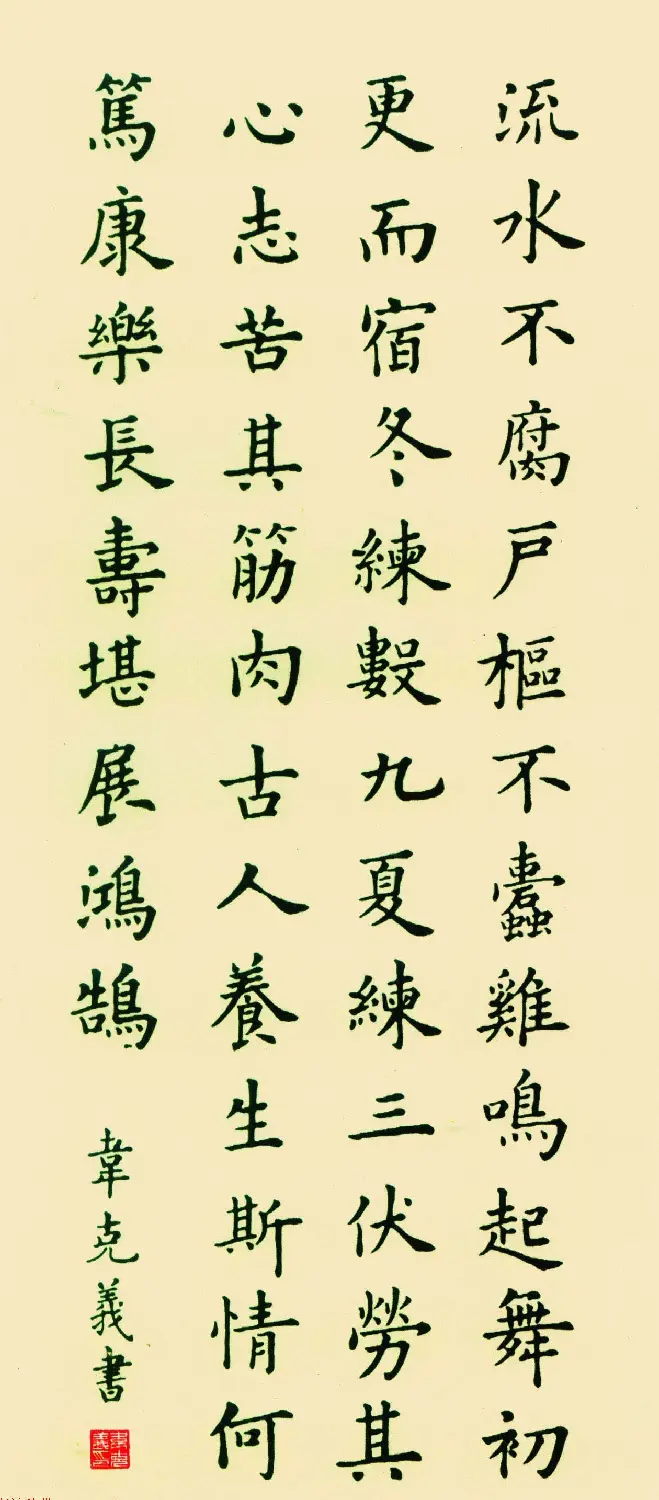 流水不腐戶樞不蠹雞鳴起舞初
更而宿冬練數九夏練三伏勞其
心志苦其筋肉古人養生斯情何
篤康樂長壽堪展鴻鵠
韋克義書